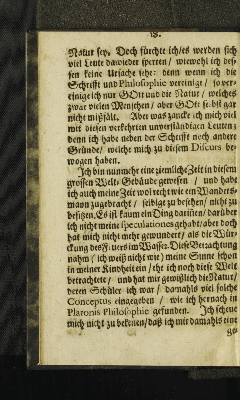 18.
Natur sey. Doch fürchte ich/es werden sich
viel Leute dawieder sperren/ wiewohl ich des-
sen keine Ursache sehe: denn wenn ich die
Schrifft und Philosophie vereinige/ so ver-
einige ich nur GOtt und die Natur/ welches
zwar vielen Menschen/ aber GOtt selbst gar
nicht mißfält. Aber was zancke ich mich viel
mit diesen verkehrten unverständigen Leuten;
denn ich habe neben der Schrifft noch andere
Gründe/ welche mich zu diesem Discurs be-
wogen haben.
Ich bin nunmehr eine ziemliche Zeit in diesem
grossen Welt-Gebäude gewesen / und habe
ich auch meine Zeit wol recht wie ein Wanders-
mann zugebracht/ selbige zu besehen/ nicht zu
besitzen. Es ist kaum ein Ding darinen/ darüber
ich nicht meine speculationes gehabt/ aber doch
hat mich nicht mehr gewundert/ als die Wür-
ckung des Feuers im Wasser. Diese Betrachtung
nahm (ich weiß nicht wie) meine Sinne schon
in meiner Kindheit ein/ ehe ich noch diese Welt
betrachtete/ und hat mir gewißlich die Natur/
deren Schüler ich war/ damahls viel solche
Conceptus eingegeben / wie ich hernach in
Platonis Philosophie gefunden. Ich scheue
mich nicht zu bekennen/ daß ich mir damahls eine
ge-